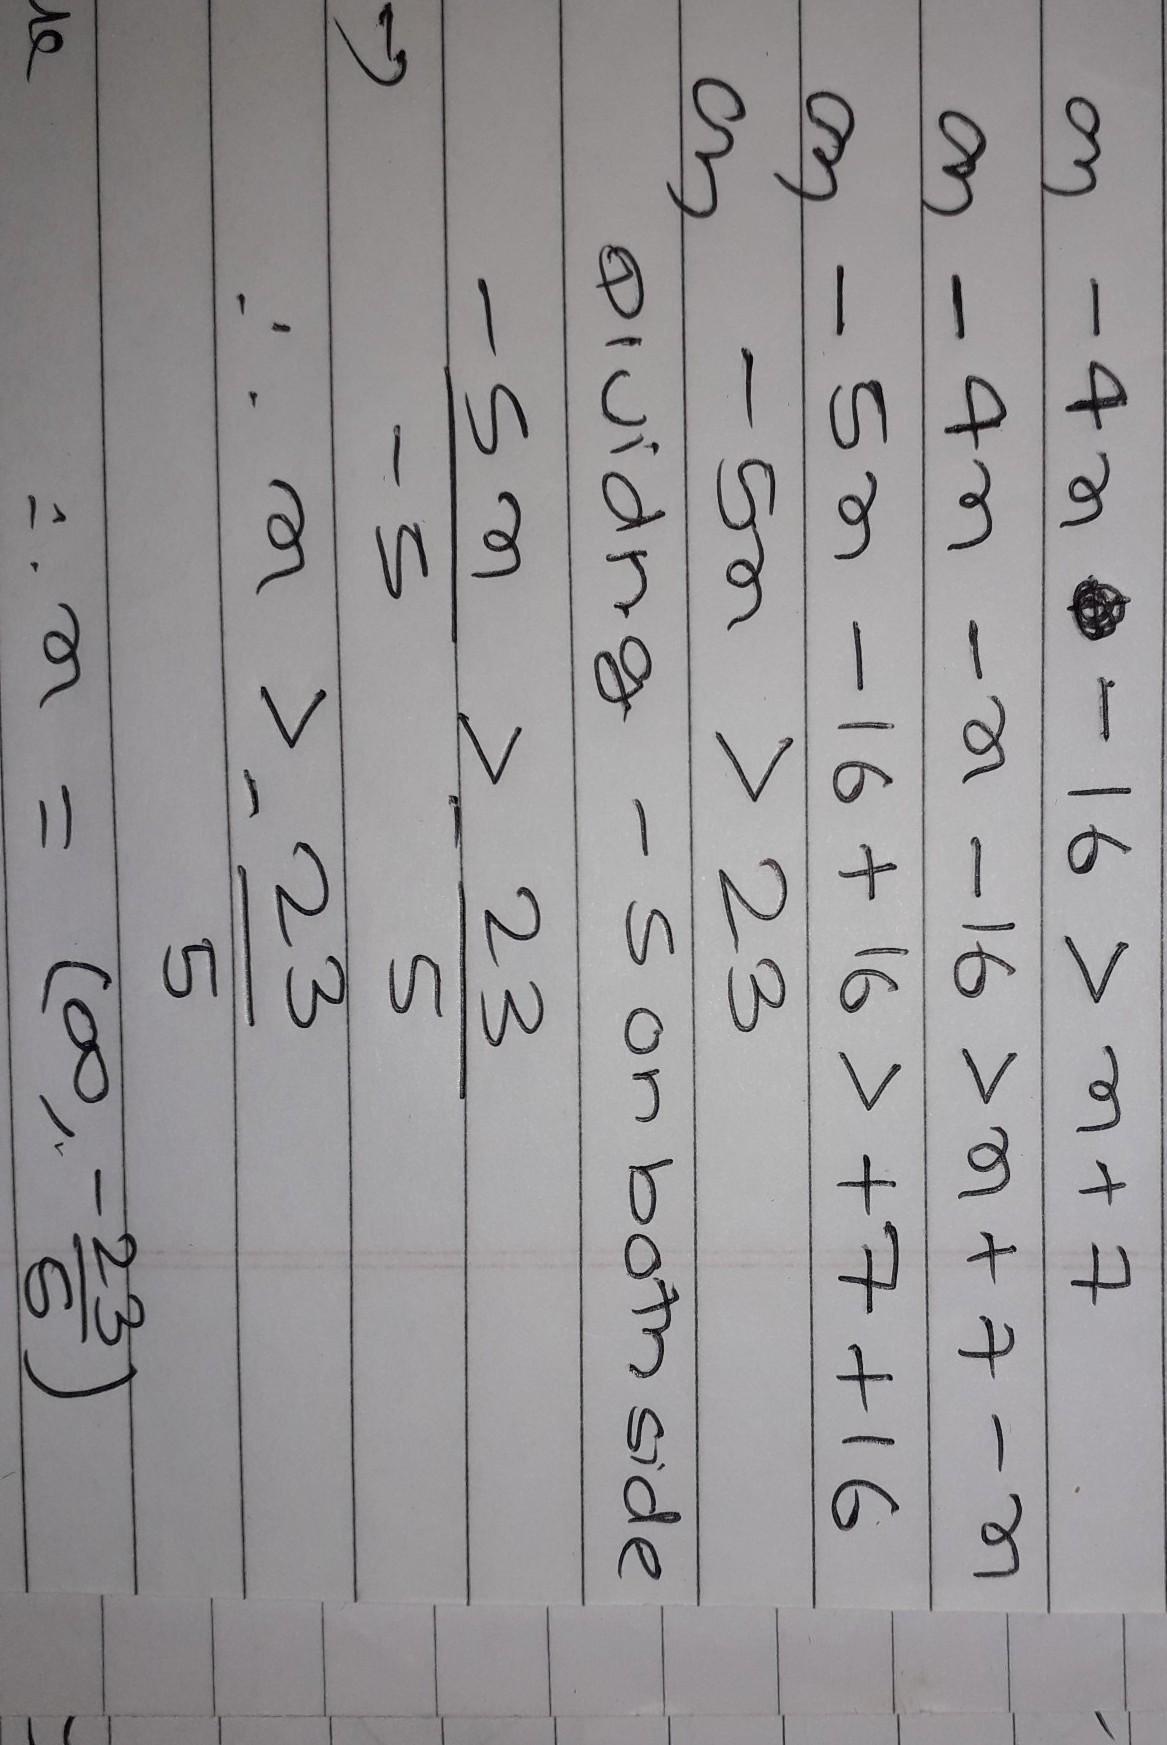 or, -4x - 16 > x + 7
or, -4x - x - 16 > x + 7 - x
or, -5x - 16 + 16 > +7 + 16
or, -5x > 23
Dividng -5 on both side
-5x/-5 > -23/5
∴ x > -23/5
∴ x = (∞, -23/5)